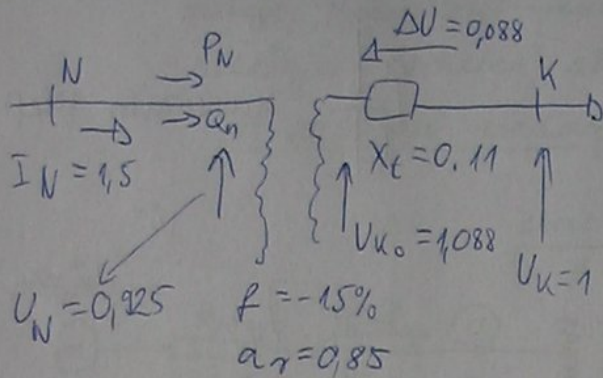 ΔU = 0,088
N
P_N
Q_n
K
I_N = 1,5
X_t = 0.11
U_K0 = 1,088
U_K = 1
U_N = 0,925
f = -15%
a_r = 0,85